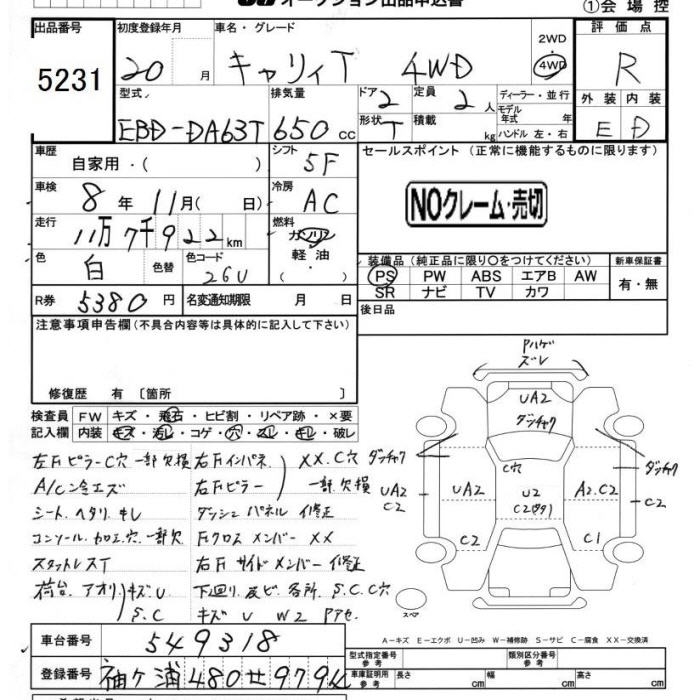 オークション出品申込書
①会場控
出品番号 5231
初度登録年月 20 月
車名・グレード キャリィT 4WD
2WD 4WD
評価点 R
外装 内装
E D
型式 EBD-DA63T
排気量 650 cc
ドア 2
形状 T
定員 2 人
積載 kg
ディーラー・並行
モデル年式 年
ハンドル 左・右
車歴 自家用・( )
シフト 5F
セールスポイント (正常に機能するものに限ります)
車検 8年 11月( 日)
冷房 AC
NOクレーム・売切
走行 11万7千922km
燃料 ガソリン
軽油・
色 白 色替
色コード 26U
装備品(純正品に限り○をつけてください)
PS PW ABS エアB AW
SR ナビ TV カワ
新車保証書
有・無
R券 5380円
名変通知期限 月 日
後日品
注意事項申告欄(不具合内容等は具体的に記入して下さい)
修復歴 有〔箇所 〕
検査員記入欄
FW キズ・飛石・ヒビ割・リペア跡・×要
内装 キズ・汚レ・コゲ・穴・スレ・キレ・破レ
左Fピラー C穴 一部欠損
右Fインパネ
XX. C穴
A/Cンタエズ
右Fピラー
一部欠損
シート. ヘタリ. キレ
ダッシュパネル 修正
コンソール. カロエ. 穴. 一部欠
Fクロスメンバー XX
スタットレスT
右Fサイドメンバー 修正
荷台. アオリ キズ. U
S.C
下廻り. サビ. 各所. S.C. C穴
キズ U W2 Pアセ.
Pハゲ
ズレ
UA2
ダンチャク
C穴
ダンチャク
UA2
C2
UA2
U2
A2. C2
ダンチャク
C2
C2
C1
スペア
A-キズ E-エクボ U-凹み W-補修跡 S-サビ C-腐食 XX-交換済
車台番号 549318
登録番号 袖ケ浦480せ979
型式指定番号 参考
類別区分番号 参考
車庫証明用 参考
長さ cm
幅 cm
高さ cm